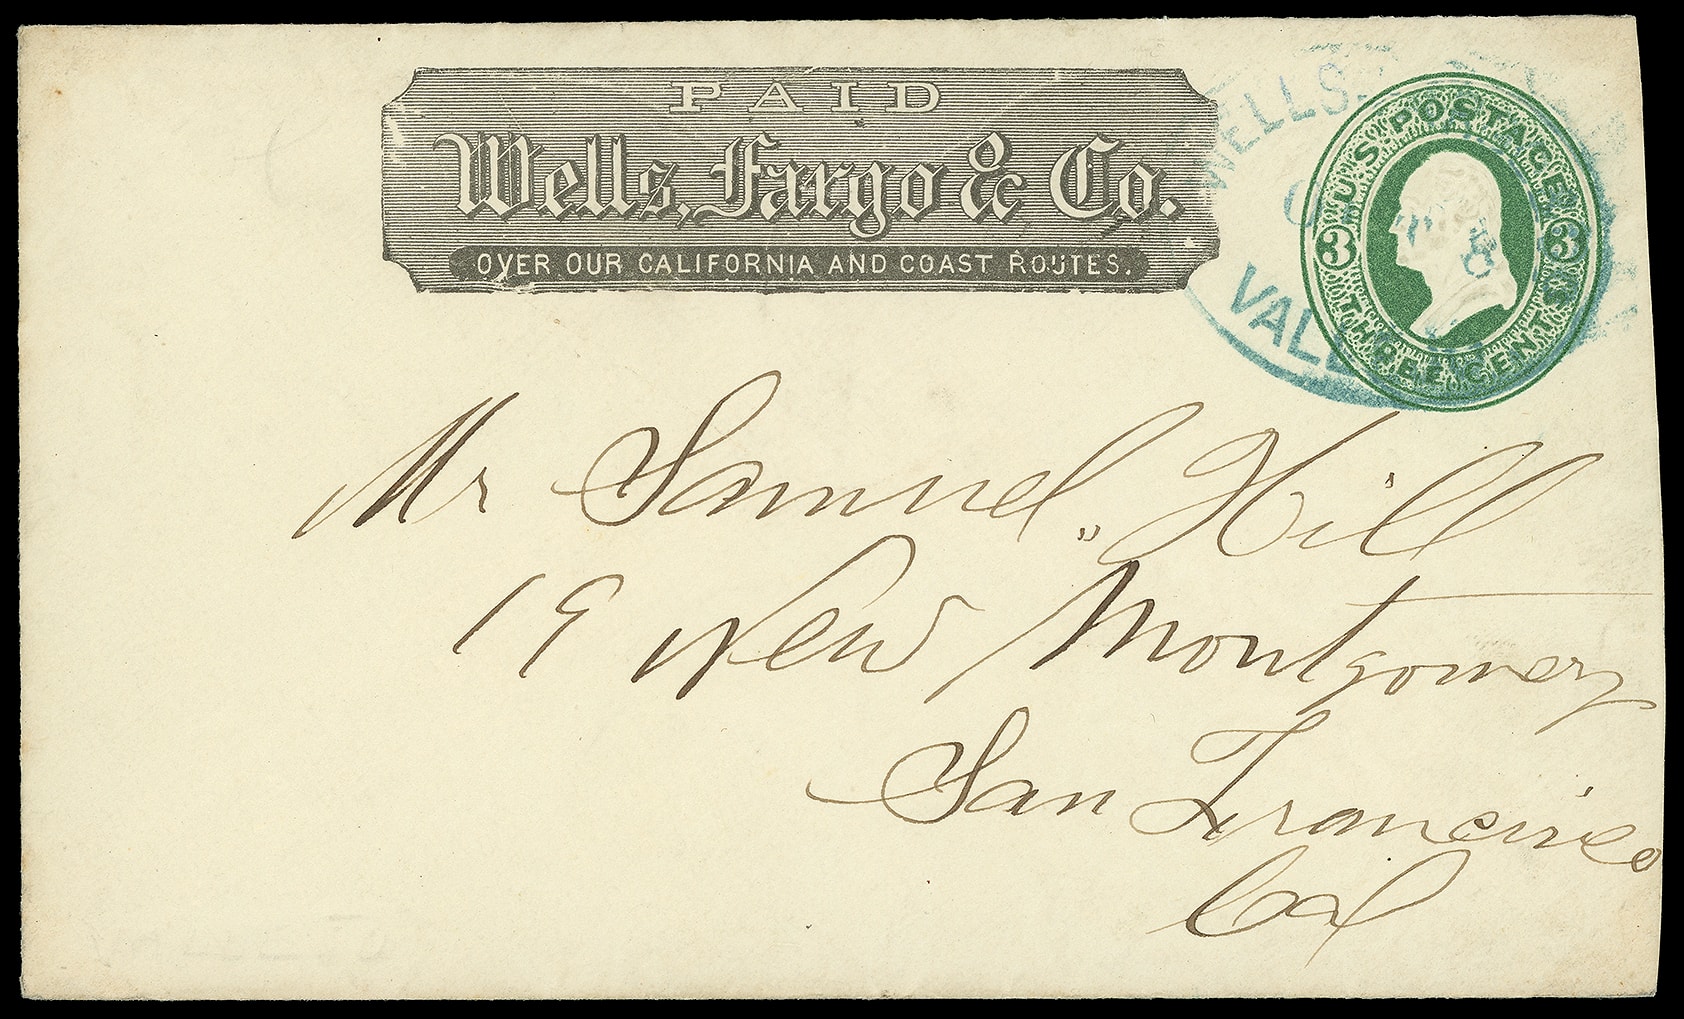 PAID
Wells, Fargo & Co.
OVER OUR CALIFORNIA AND COAST ROUTES.
WELLS,
VALL
U.S. POSTAGE
3 3
THREE CENTS
Mr Samuel Hill
19 New Montgomery
San Francisco
Cal